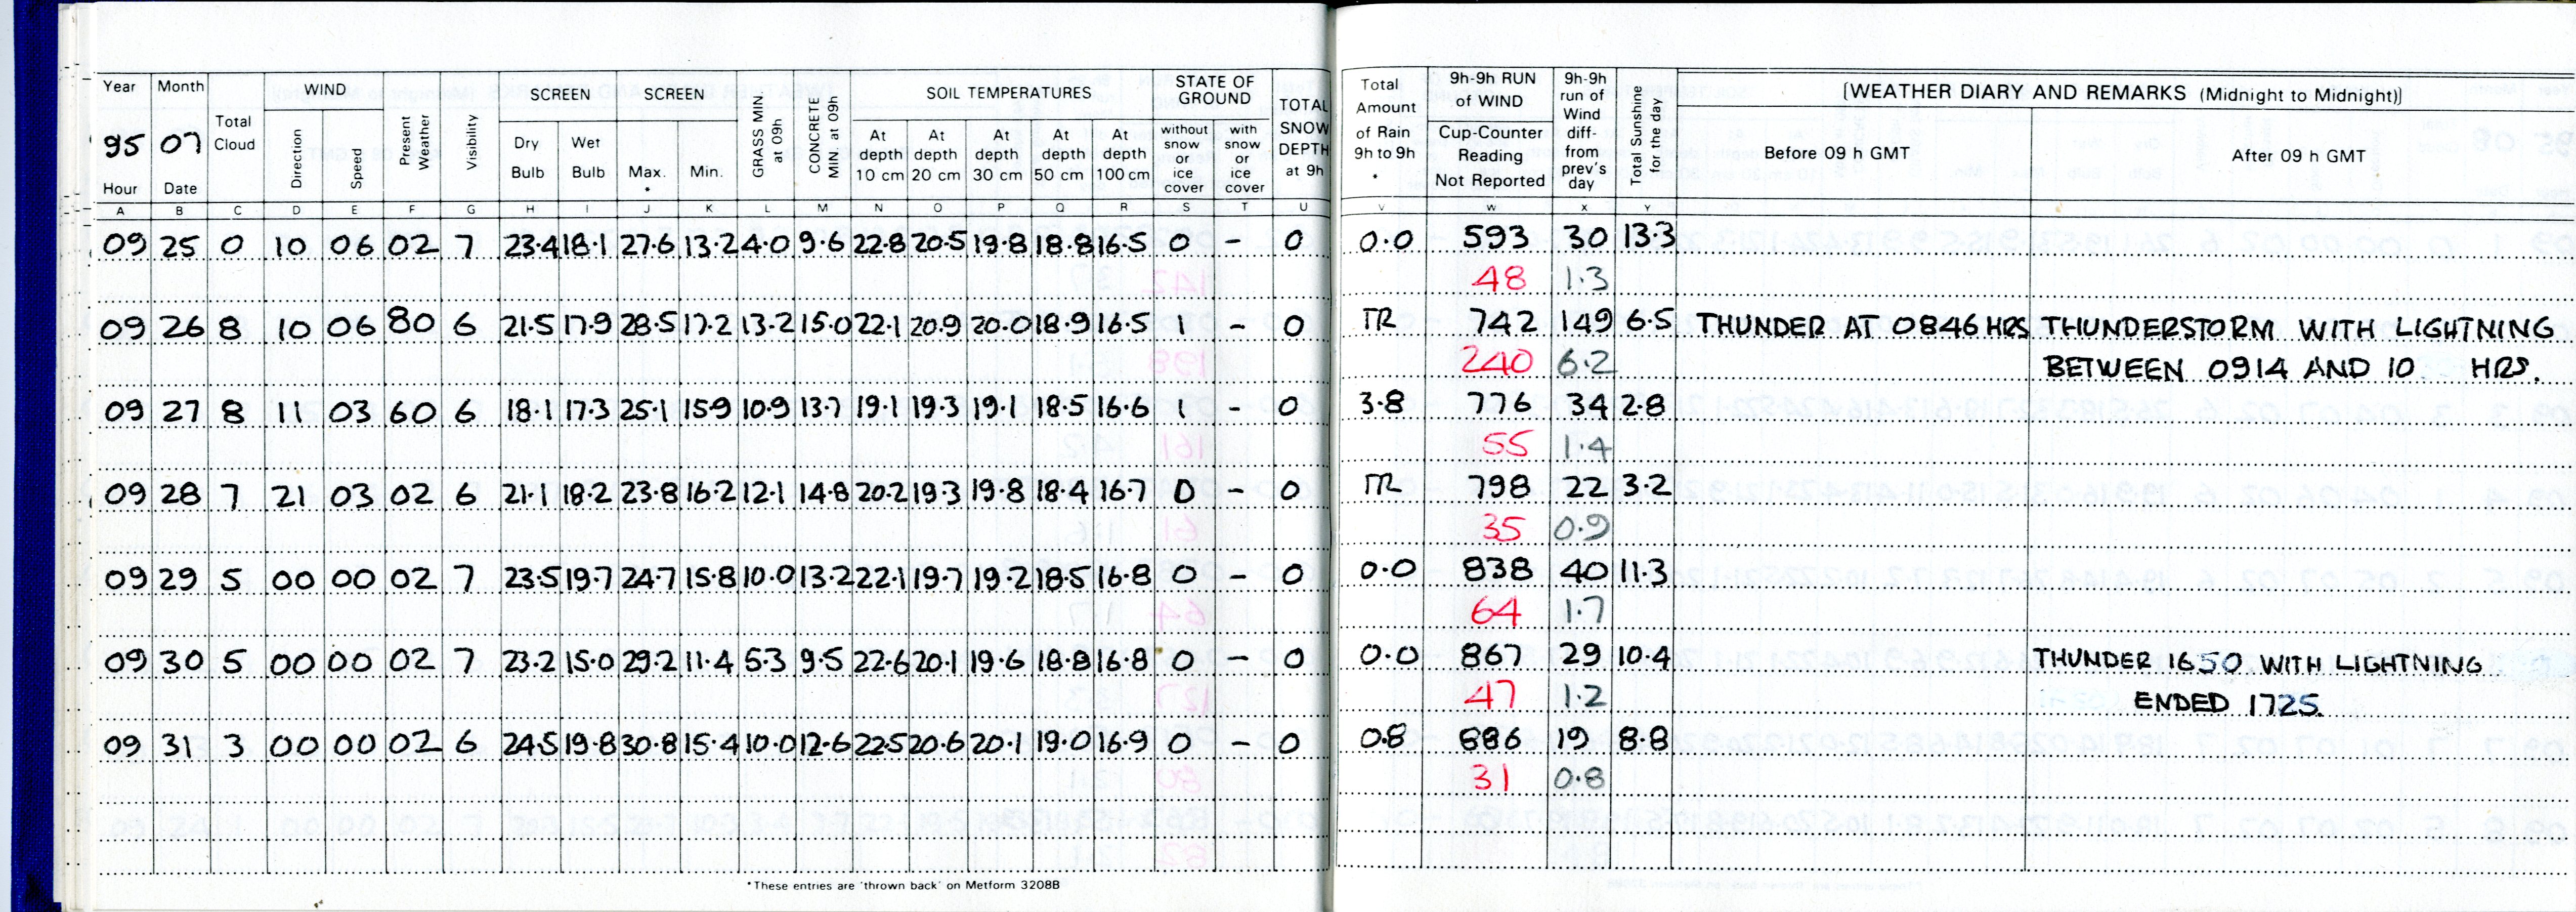 Year Month Total Cloud WIND Present Weather Visibility SCREEN SCREEN GRASS MIN. at 09h CONCRETE MIN. at 09h SOIL TEMPERATURES STATE OF GROUND TOTAL SNOW DEPTH at 9h Total Amount of Rain 9h to 9h * 9h-9h RUN of WIND 9h-9h run of Wind diff- from prev's day Total Sunshine for the day [WEATHER DIARY AND REMARKS (Midnight to Midnight)]
95 07 Direction Speed Dry Bulb Wet Bulb Max. * Min. At depth 10 cm At depth 20 cm At depth 30 cm At depth 50 cm At depth 100 cm without snow or ice cover with snow or ice cover Cup-Counter Reading Not Reported Before 09 h GMT After 09 h GMT
Hour Date
A B C D E F G H I J K L M N O P Q R S T U V W X Y
09 25 0 10 06 02 7 23.4 18.1 27.6 13.2 4.0 9.6 22.8 20.5 19.8 18.8 16.5 0 - 0 0.0 593 30 13.3
48 1.3
09 26 8 10 06 80 6 21.5 17.9 28.5 17.2 13.2 15.0 22.1 20.9 20.0 18.9 16.5 1 - 0 TR 742 149 6.5 THUNDER AT 0846 HRS THUNDERSTORM WITH LIGHTNING
240 6.2 BETWEEN 0914 AND 10 HRS.
09 27 8 11 03 60 6 18.1 17.3 25.1 15.9 10.9 13.7 19.1 19.3 19.1 18.5 16.6 1 - 0 3.8 776 34 2.8
55 1.4
09 28 7 21 03 02 6 21.1 18.2 23.8 16.2 12.1 14.8 20.2 19.3 19.8 18.4 16.7 0 - 0 TR 798 22 3.2
35 0.9
09 29 5 00 00 02 7 23.5 19.7 24.7 15.8 10.0 13.2 22.1 19.7 19.2 18.5 16.8 0 - 0 0.0 838 40 11.3
64 1.7
09 30 5 00 00 02 7 23.2 15.0 29.2 11.4 5.3 9.5 22.6 20.1 19.6 18.8 16.8 0 - 0 0.0 867 29 10.4 THUNDER 1650 WITH LIGHTNING
47 1.2 ENDED 1725.
09 31 3 00 00 02 6 24.5 19.8 30.8 15.4 10.0 12.6 22.5 20.6 20.1 19.0 16.9 0 - 0 0.8 886 19 8.8
31 0.8
*These entries are 'thrown back' on Metform 3208B